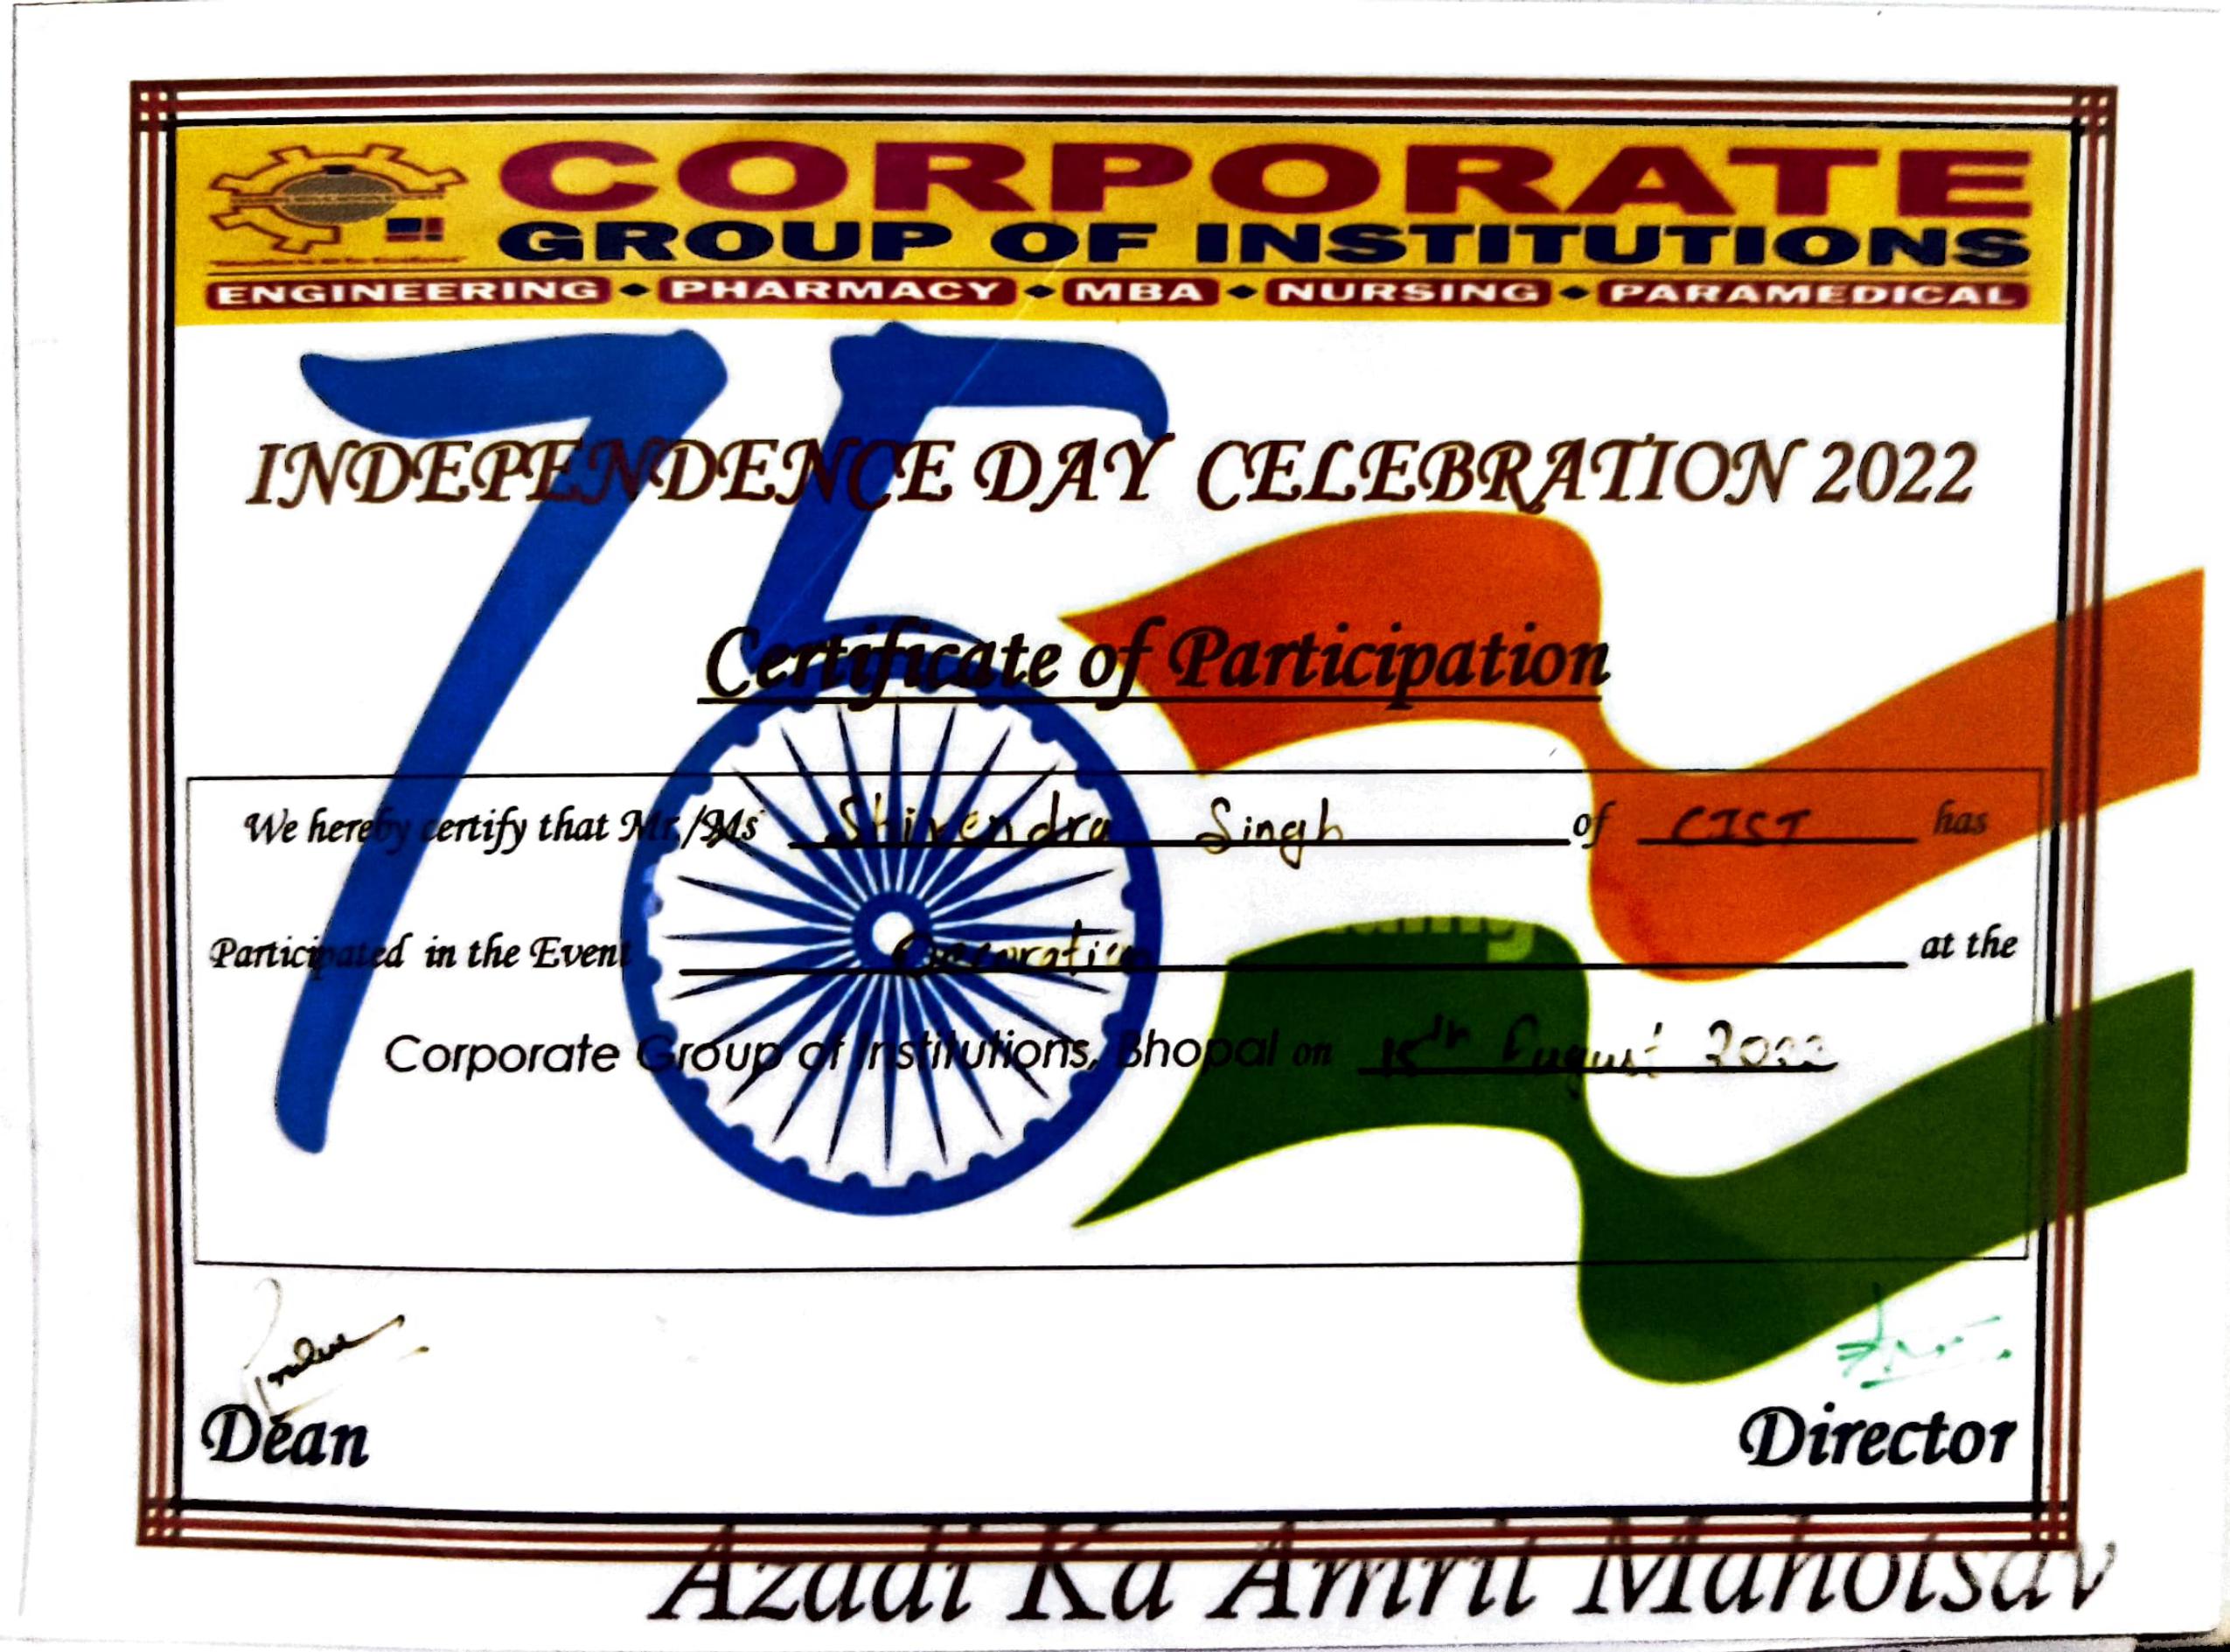 CORPORATE
GROUP OF INSTITUTIONS
ENGINEERING • PHARMACY • MBA • NURSING • PARAMEDICAL
75
INDEPENDENCE DAY CELEBRATION 2022
Certificate of Participation
We hereby certify that Mr./Ms Shivendra Singh of CIST has
Participated in the Event Decoration at the
Corporate Group of Institutions, Bhopal on 15th August 2022
Dean
Director
Azadi Ka Amrit Mahotsav